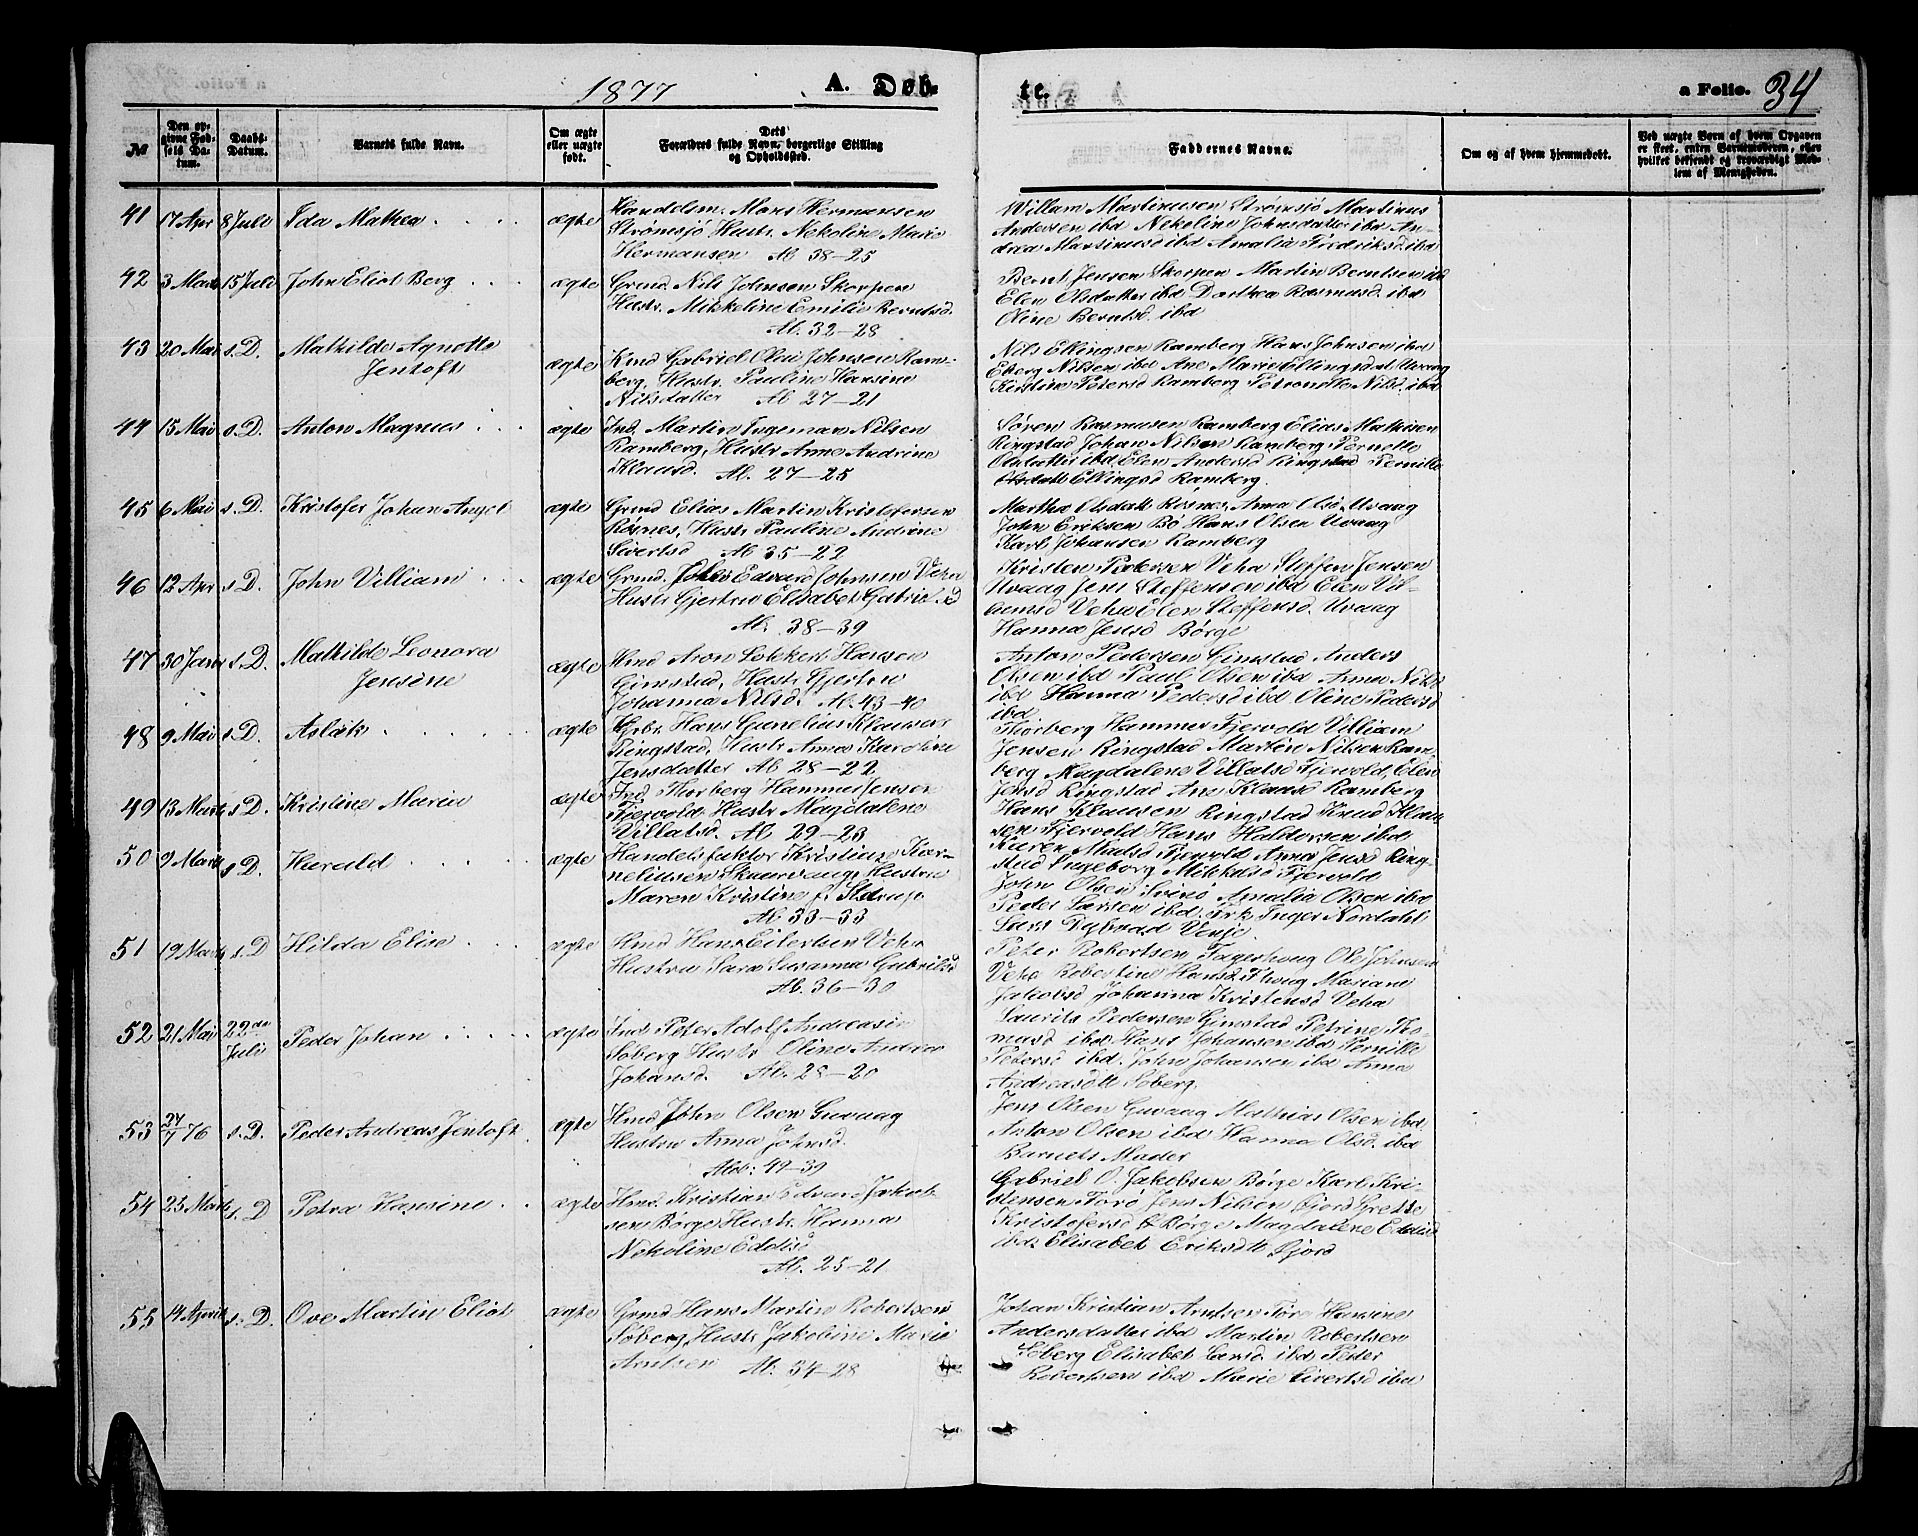 1877 A. Døb-
te.
a Folio. 34
№
Den opgivne Fødsels Datum.
Daabs-Datum.
Barnets fulde Navn.
Om ægte eller uægte født.
Dets Forældres fulde Navn, borgerlige Stilling og Opholdssted.
Faddernes Navne.
Om og af hvem hjemmedøbt.
Ved uægte Børn af hvem Opgaven er skeet, enten Barnemoderen, eller hvilket bekjendt og troværdigt Medlem af Menigheden.
41 17 Apr 8 Juli Ida Mathea ægte
Handelsm. Mons Hermansen
Strömsjö Hustr. Nekoline Marie
Hermansen Al. 38-25
Willum Martinusen Strömsjö Martinus
Andersen ibd Nikoline Johnsdatter ibd An-
drea Martinusd ibd Amalia Fredriksd. ibd
42 3 Marts 15 Juli John Eliot Berg ægte
Grmd. Nils Johnsen Skorpen
Hustr. Mikkeline Emilie Berntsd.
Al. 32-28
Bernt Jensen Skorpen Martin Berntsen ibd
Elen Olsdatter ibd Dorthea Rasmusd. ibd
Oline Berntsd. ibd
43 20 Mai s. D. Mathilde Agnette
Jentoft ægte
Kmd Gabriel Olai Johnsen Ram-
berg, Hustr. Pauline Hansine
Nilsdatter Al 27-21
Nils Ellingsen Ramberg Hans Johnsen ibd
Edberg Nilsen ibd Ane Marie Ellingsdat Uvaag
Kirstine Pedersd Ramberg Petronelle Nilsd. ibd
44 15 Mai s. D. Anton Magnus ægte
Ind. Martin Ingeman Nilsen
Ramberg, Hustr Anne Andrine
Klausd. Al. 27-25
Søren Rasmusen Ramberg Elias Mathisen
Ringstad Johan Nilsen Ramberg Pernelle
Olsdatter ibd. Elen Andersd Ringstad Pernille
Ellingsd Ramberg.
45 6 Mai s. D. Kristofer Johan Angel ægte
Grmd Elias Martin Kristofersen
Røsnes, Hustr Pauline Andrine
Sivertsd Al 35-22
Martha Olsdatt Røsnes, Anna Olsd Uvaag
John Eriksen Bö Hans Olsen Uvaag
Karl Johansen Ramberg
46 12 Apr s. D. John Villiam ægte
Grmd. John Edvard Johnsen Veha
Hustr Gjertru Elisabet Gabrielsd
Al. 38-39
Kristen Pedersen Veha Steffen Jensen
Uvaag Jens Steffensen ibd Elen Vil-
umsd Veha Elen Steffensd. Uvaag
Hanna Jensd Börge
47 30 Janr s. D. Mathilde Leonora
Jensine ægte
Hmd Aron Lokkert Hansen
Gimstad, Hustr Gjertru
Johanna Nilsd. Al. 43-40
Anton Pedersen Gimstad Anders
Olsen ibd Paul Olsen ibd Anna Nilsd
ibd Hanna Pedersd ibd Oline Pedersd
ibd
48 9 Mai s. D. Aslak ægte
Hans Gunelius Klausen
Ringstad, Hustr Anna Karoline
Jensdatter Al 28-22
Thorberg Hammer Fjervold Villiam
Jensen Ringstad Martin Nilsen Ram-
berg Magdalene Villatsd Fjervold, Elen
Jensd Ringstad Ane Klausd Ramberg
49 13 Marts s. D. Kristine Maria ægte
Ind Thorberg Hammer Jensen
Fjervold Hustr Magdalene
Villatsd. Al 29-23
Hans Klausen Ringstad Knud Klau-
sen Fjervold Hans Haldorsen ibd
Karen Madsd Fjervold Anna Jensd Ring-
stad Ingeborg Mikkelsd Fjervold
50 9 Marts s. D. Harald ægte
Handelsfaktor Kristian Kor-
neliusen Skaarvaag, Hustru
Maren Kristine f.
Al 33-33
John Olsen Svinö Amalia Olsen ibd
Peder Larsen ibd. Frk Inger Nordahl
Lars Venje.
51 19 Marts s. D Hilda Elise ægte
Hmd Hans Eilertsen Veha
Hustru Sara Susanna Gabrielsd
Al. 36-30
Peter Robertsen Fagerhoug Ole Johnsen
Veha Robertine Hansd. Mariane
Jakobsd Johanna Kristensd Veha
52 21 Mai 22de Juli Peder Johan ægte
Ind Peter Adolf Andreasen
Söberg Hustr Oline Andrea
Johansd. Al. 28-20
Laurits Pedersen Gimstad Petrine Tho-
masd ibd Hans Johansen ibd Pernille
Pedersd ibd. John Johansen ibd Anna
Andreasdtt Söberg.
53 27/7 76 s. D. Peder Andreas Jentoft ægte
Hmd John Olsen Guvaag
Hustru Anna Johnsd.
Ald: 49-39
Jens Olsen Guvaag Mathias Olsen ibd.
Anton Olsen ibd Hanna Olsd. ibd
Barnets Moder
54 23 Marts s. D Petra Hansine ægte
Hmd. Kristian Edvard Jakob-
sen Börge Hustr. Hanna
Nekoline Eddisd
Al. 25-21
Gabriel O. Jakobsen Börge Karl Kri-
stensen Forö Jens Nilsen Øjord Grethe
Kristofersd Börge Magdalene Eddisd
ibd Elisabet Eriksdtt Øjord
55 14 April s. D. Ove Martin Eliot ægte
Grmd Hans Martin Robertsen
Söberg, Hustr Jakoline Marie
Arntsen Al. 34-28
Johan Kristian Arntsen Forö Hansine
Andersdatter ibd Martin Robertsen
Söberg Elisabet Larsd. ibd Peder
Robertsen ibd Marie Sivertsd ibd